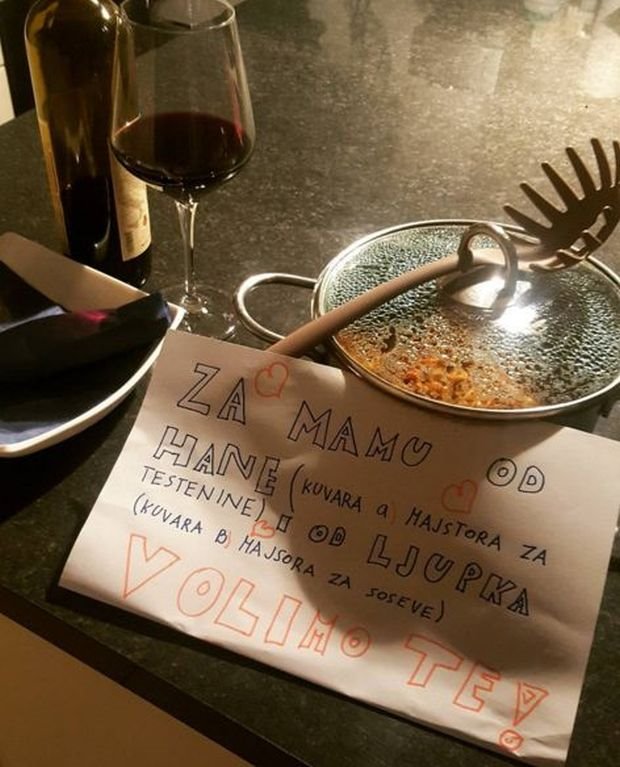 ZA MAMU OD
HANE (KUVARA a) MAJSTORA ZA
TESTENINE) I OD LJUPKA
(KUVARA B) MAJSORA ZA SOSEVE)
VOLIMO TE!